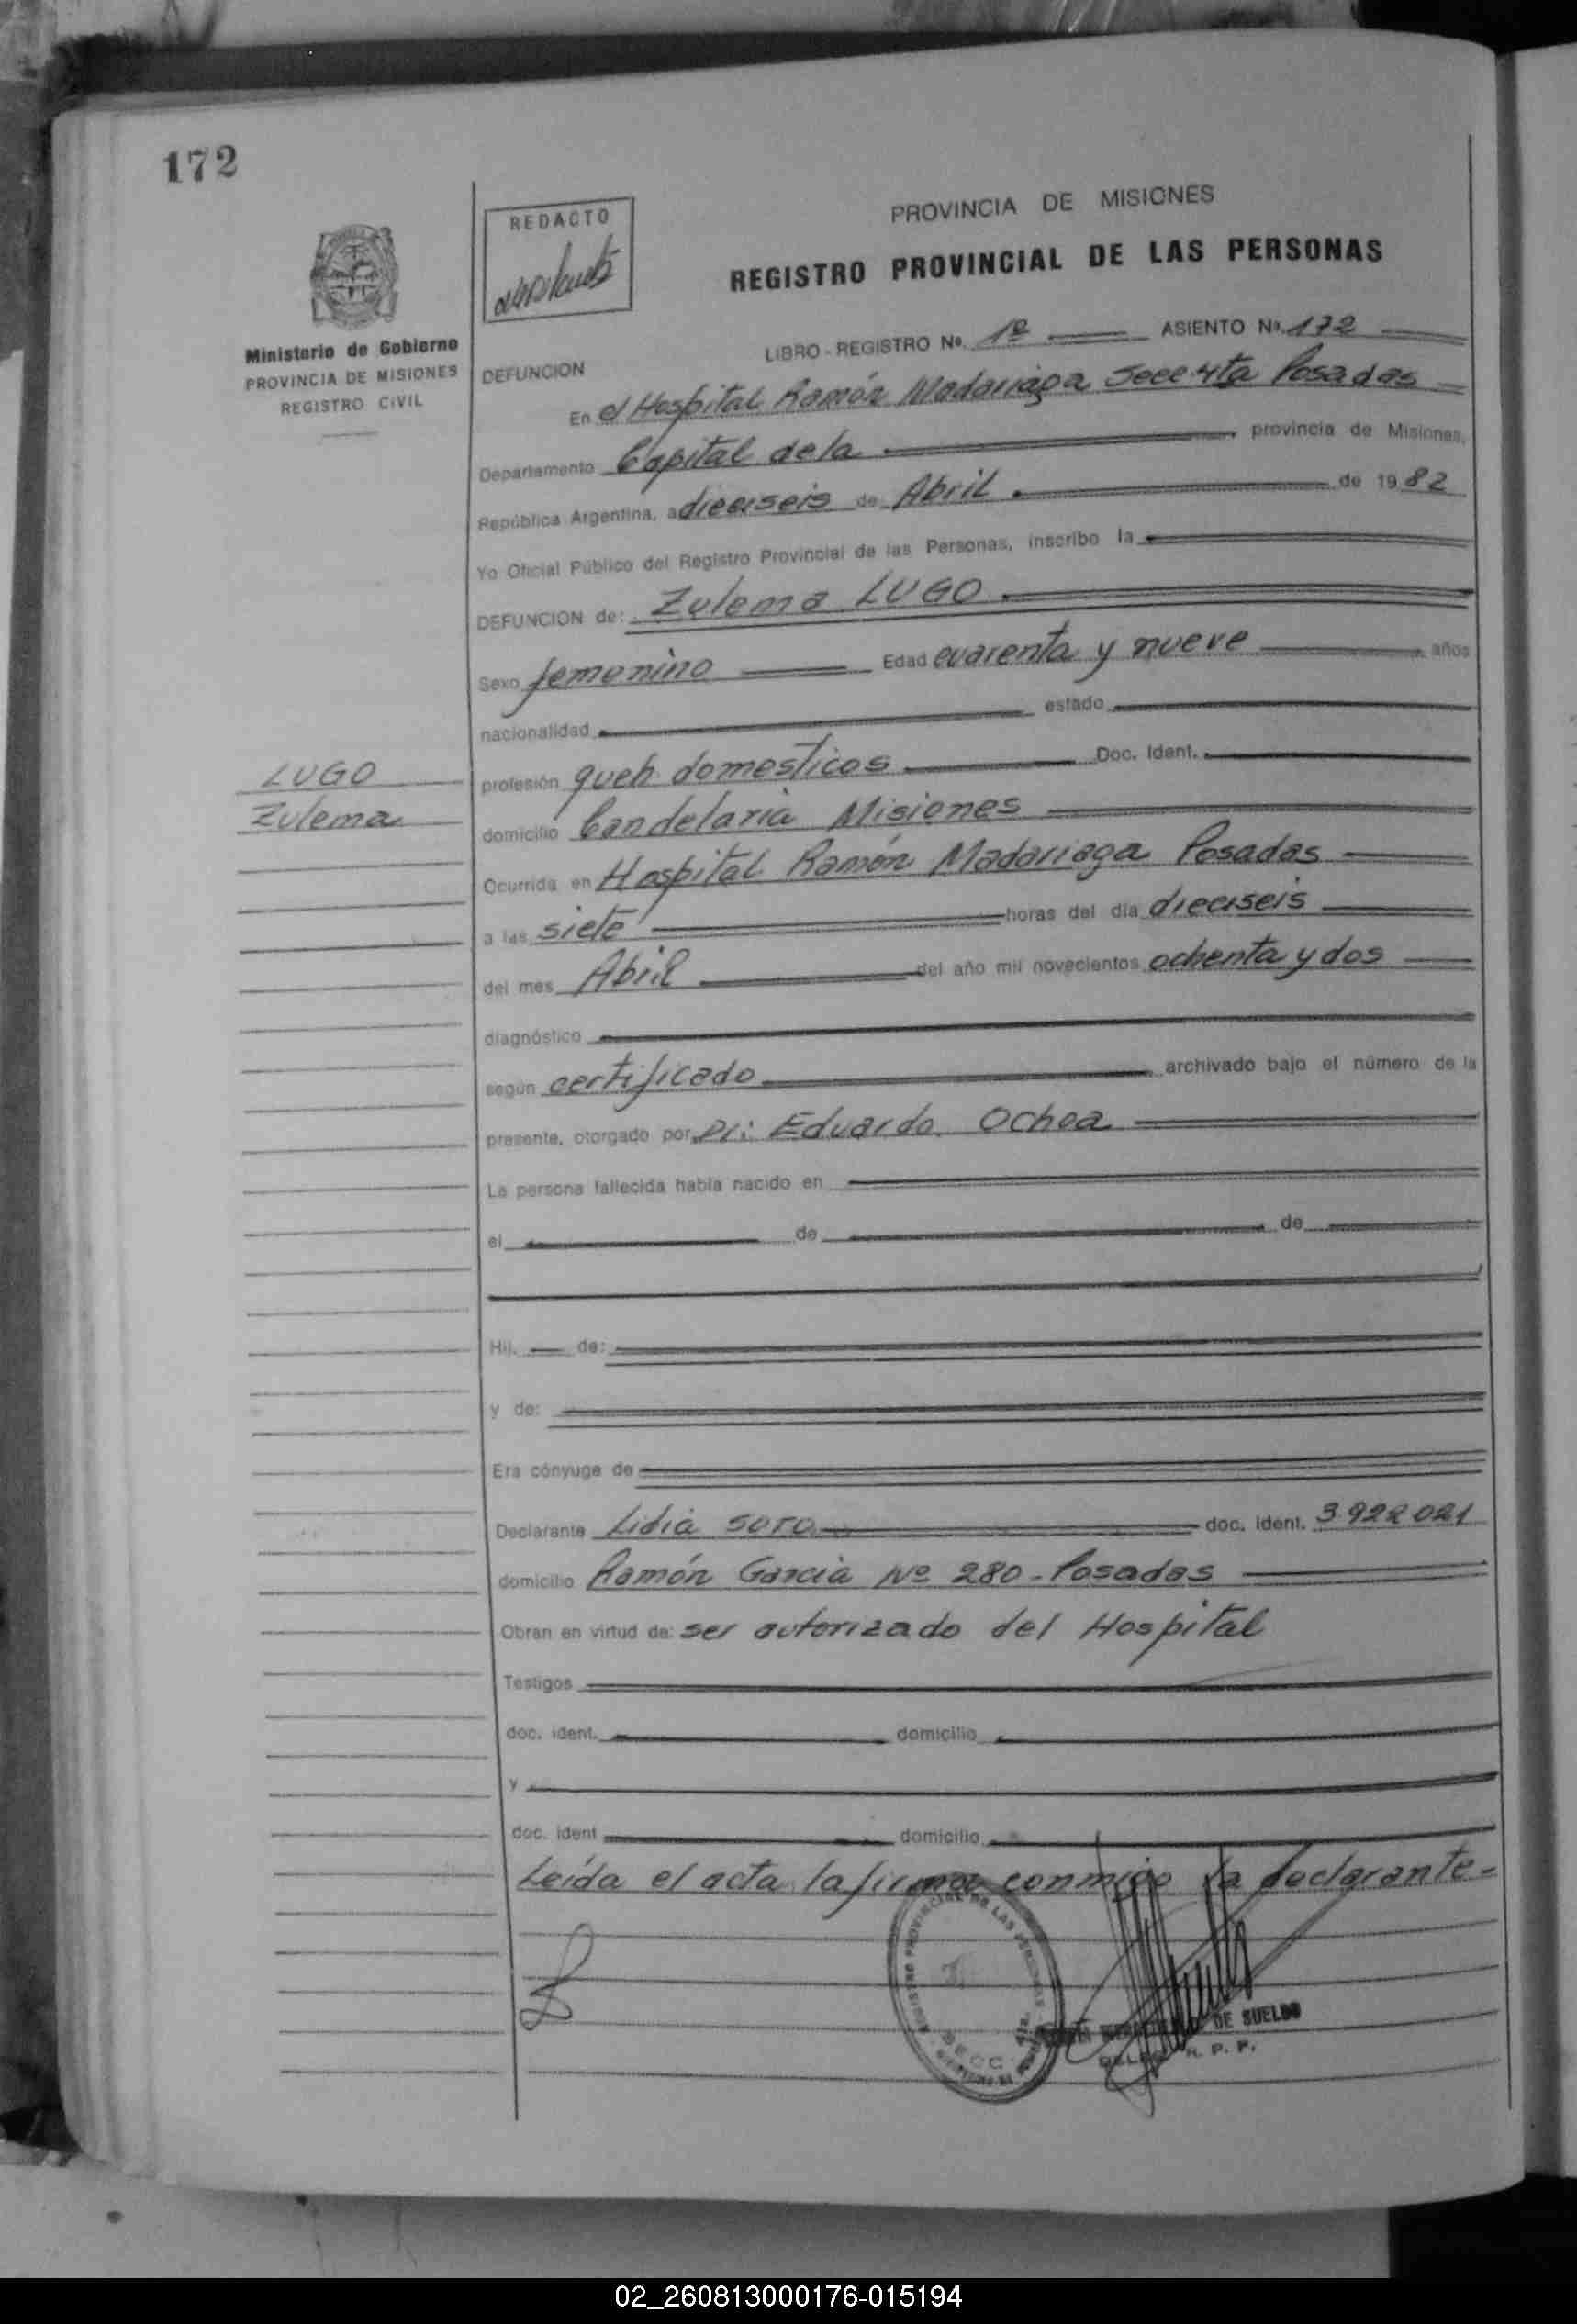 172
REDACTO
PROVINCIA DE MISIONES
REGISTRO PROVINCIAL DE LAS PERSONAS
Ministerio de Gobierno
PROVINCIA DE MISIONES
REGISTRO CIVIL
LIBRO - REGISTRO Nº. 1º ASIENTO Nº. 172
DEFUNCION
En el Hospital Ramón Madariaga Secc 4ta Posadas
Departamento Capital de la provincia de Misiones,
República Argentina, a dieciseis de Abril de 1982
Yo Oficial Público del Registro Provincial de las Personas, inscribo la
DEFUNCION de: Zulema LUGO
Sexo femenino Edad cuarenta y nueve años
nacionalidad estado
LUGO
Zulema
profesión queh domesticos Doc. Ident.
domicilio Candelaria Misiones
Ocurrida en Hospital Ramón Madariaga Posadas
a las siete horas del día dieciseis
del mes Abril del año mil novecientos ochenta y dos
diagnóstico
según certificado archivado bajo el número de la
presente, otorgado por Dr: Eduardo Ochoa
La persona fallecida había nacido en
el de de
Hij. de:
y de:
Era cónyuge de
Declarante Lidia SOTO doc. ident. 3.922.021
domicilio Ramón Garcia Nº 280 - Posadas
Obran en virtud de: ser autorizado del Hospital
Testigos
doc. ident. domicilio
y
doc. ident domicilio
Leída el acta la firma conmigo la declarante-
REGISTRO PROVINCIAL DE LAS PERSONAS
SECC. 4ta.
DE SUELDO
R. P. P.
02_260813000176-015194